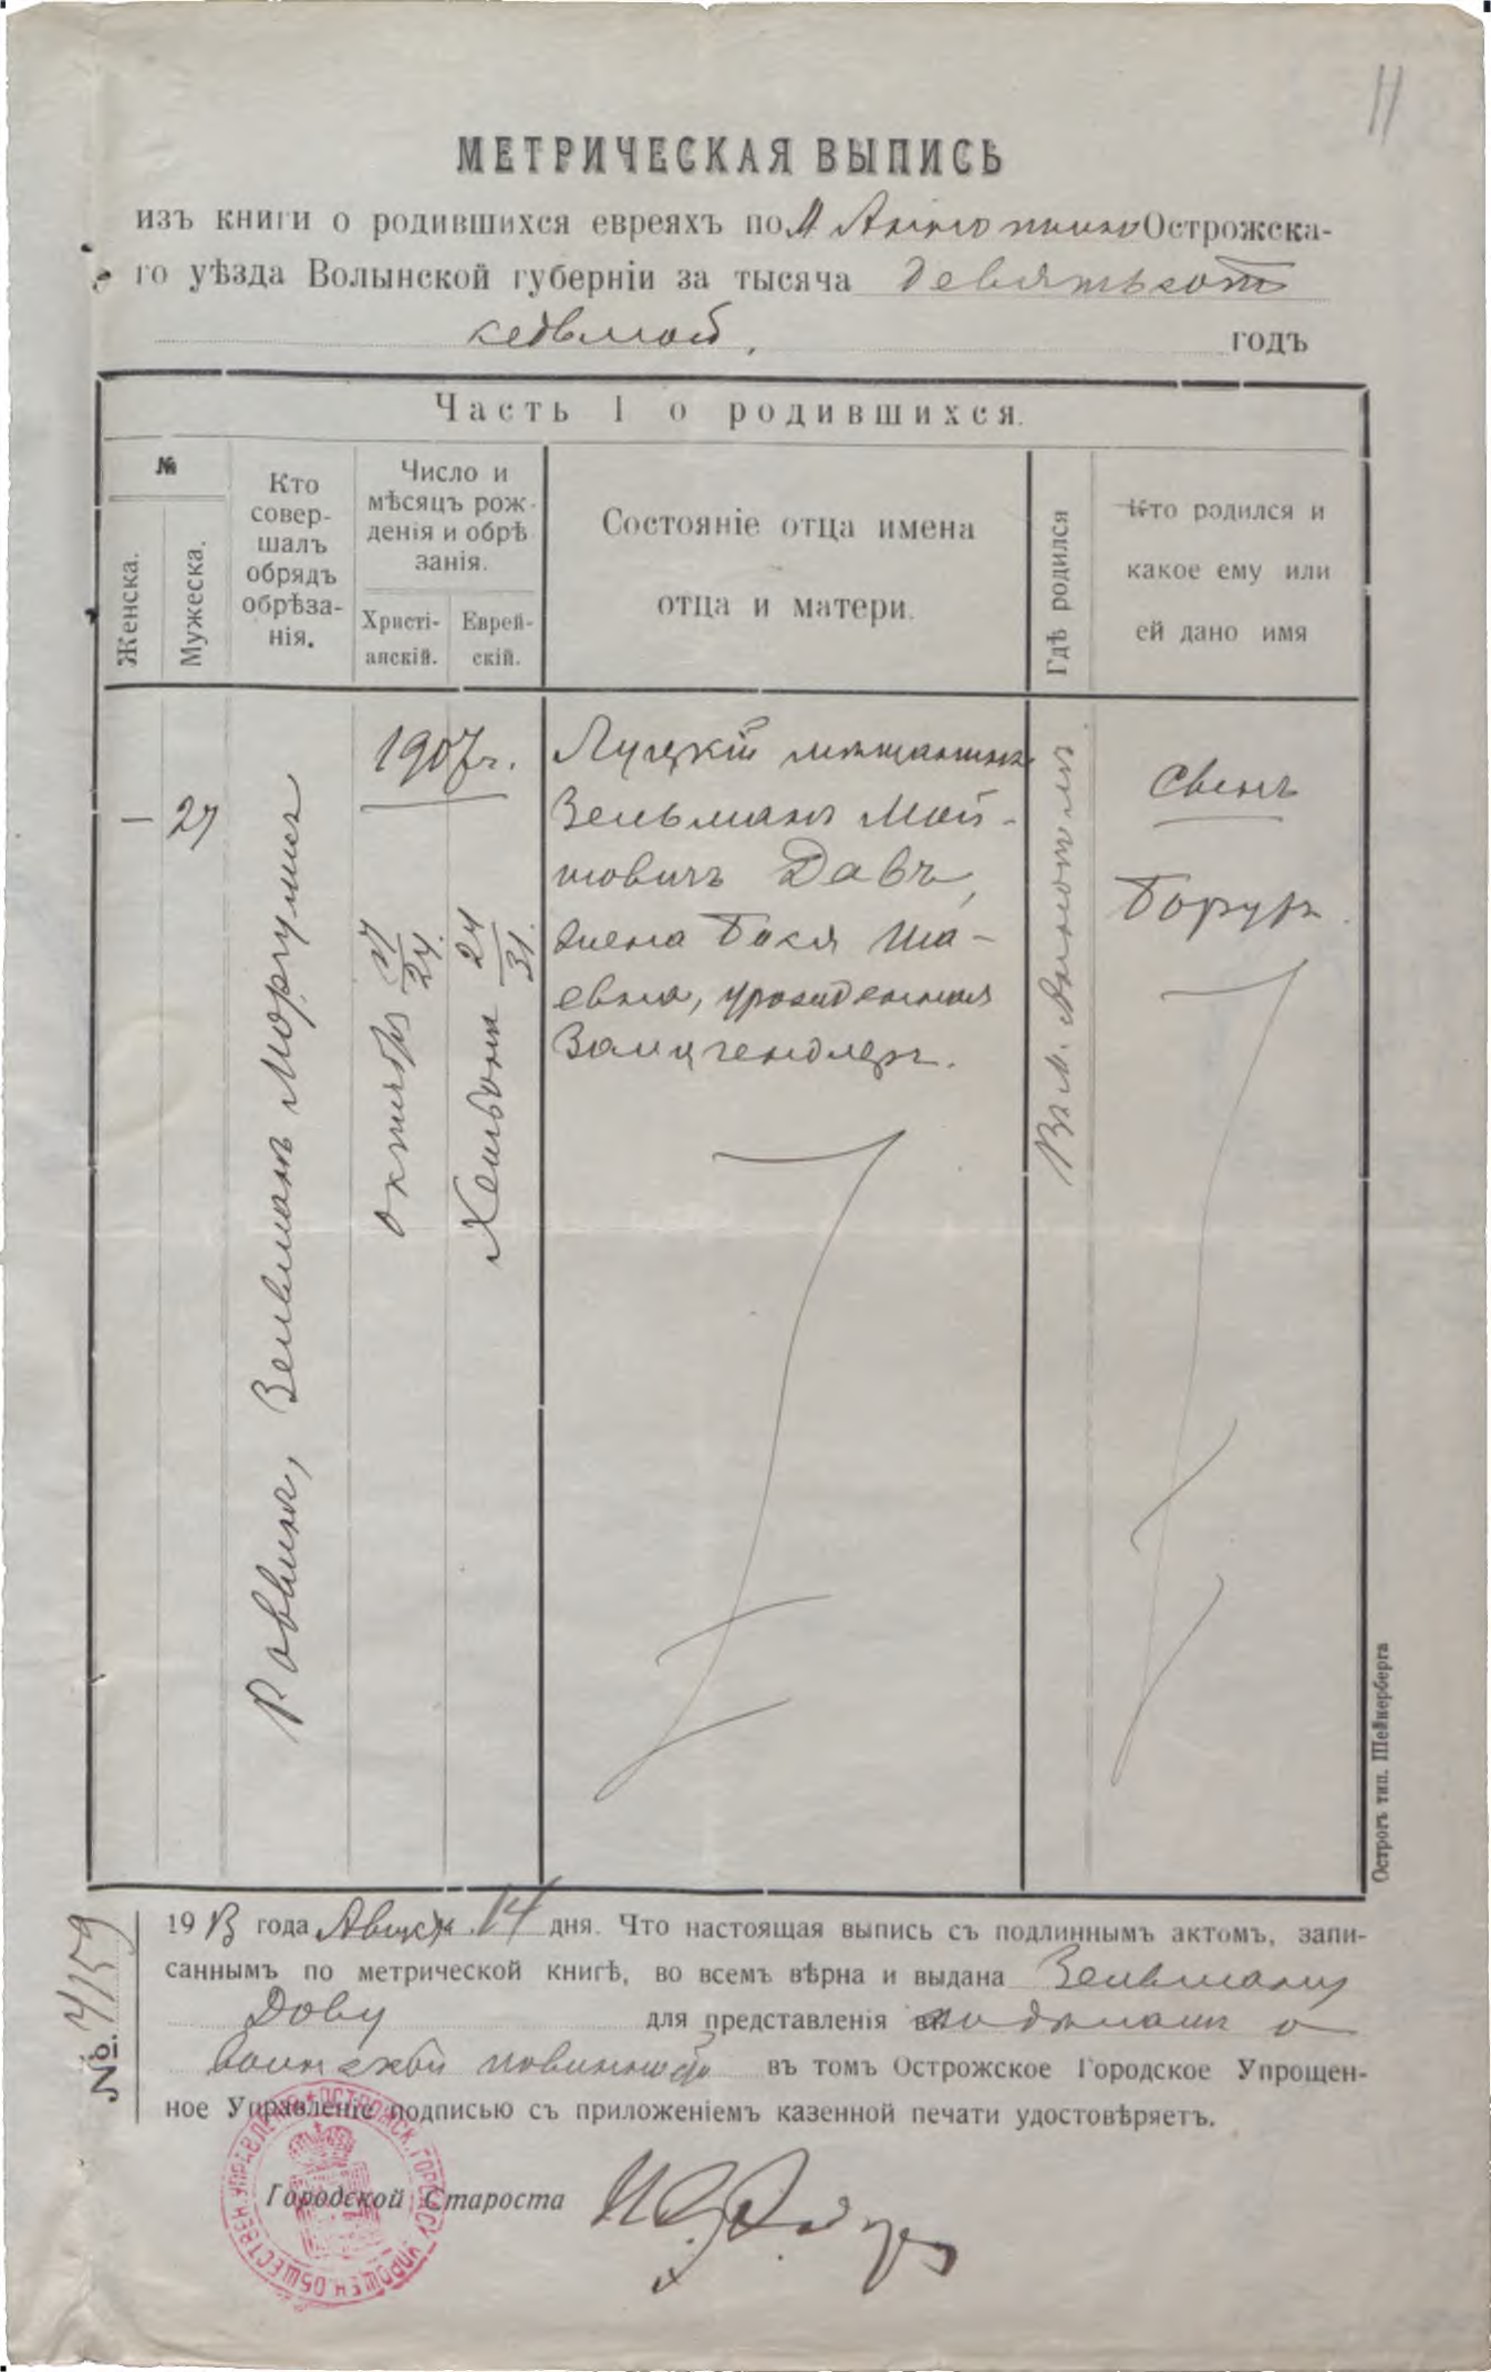 11
МЕТРИЧЕСКАЯ ВЫПИСЬ
изъ книги о родившихся евреяхъ по м Аннополю Острожска-
го уѣзда Волынской губерніи за тысяча девятьсот
седьмой. годъ
Часть I о родившихся.
№
Женска.
Мужеска.
Кто
совер-
шалъ
обрядъ
обрѣза-
нія.
Число и
мѣсяцъ рож-
денія и обрѣ
занія.
Христі-
анскій.
Еврей-
скій.
Состояніе отца имена
отца и матери.
Гдѣ родился
Кто родился и
какое ему или
ей дано имя
— 27
Раввинъ, Зельманъ Моргулисъ
1907 г.
октября 17/24.
Хешвона 24/31.
Луцкій мѣщанинъ
Зельманъ Мой-
шовичъ Давъ,
жена Бася Ша-
евна, урожденная
Залцгендлеръ.
Въ м. Аннополѣ
Сынъ
Борухъ.
Острогъ тип. Шейнерберга
№. 4159
1913 года Августа 14 дня. Что настоящая выпись съ подлиннымъ актомъ, запи-
саннымъ по метрической книгѣ, во всемъ вѣрна и выдана Зельману
Дову для представленія по дѣламъ о
воинской повинности въ томъ Острожское Городское Упрощен-
ное Управленіе подписью съ приложеніемъ казенной печати удостовѣряетъ.
Городской Староста
ОСТРОЖСК. ГОРОДСК. УПРОЩЕН. ОБЩЕСТВЕН. УПРАВЛЕНІЕ